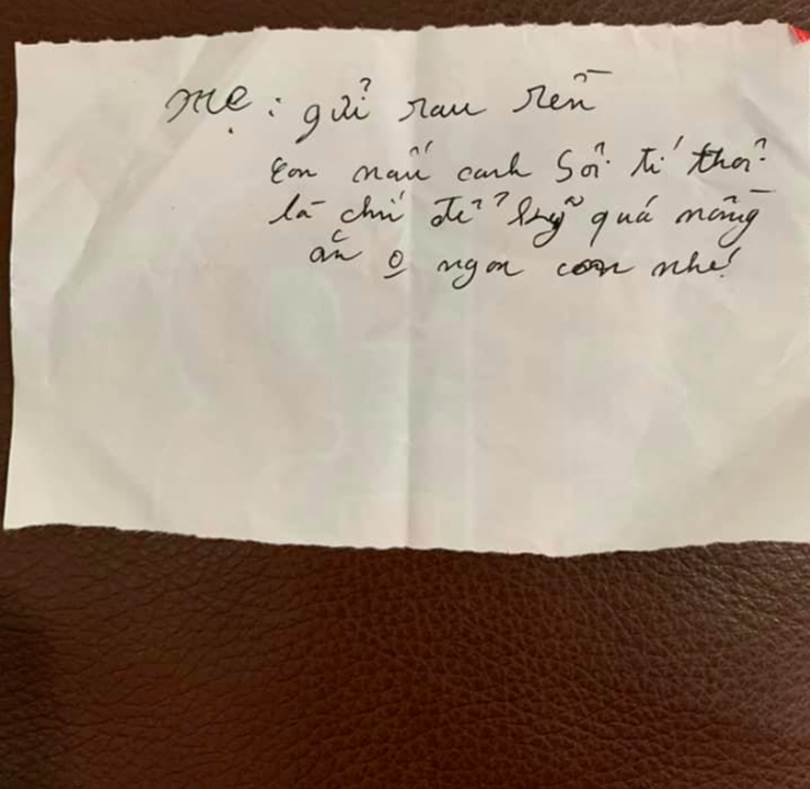 mẹ: gửi rau rền
con nấu canh Sôi tí thôi
là chứ để kỹ quá nõng
ăn o ngon con nhé!